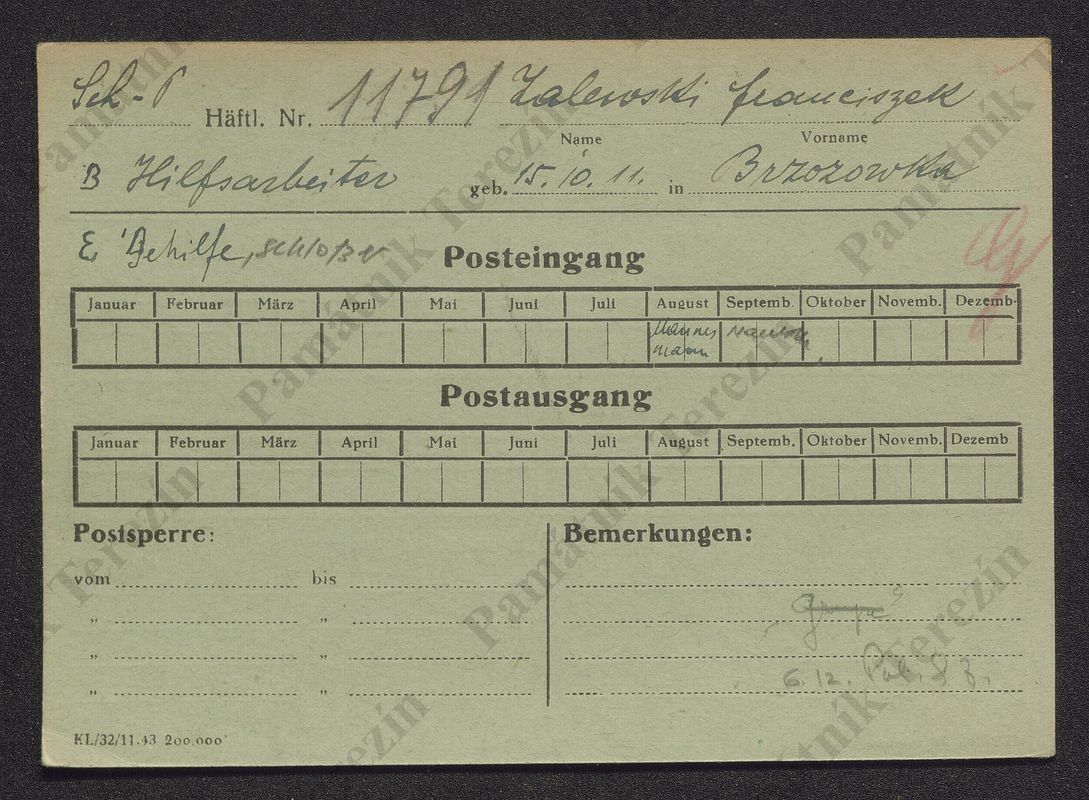 Sch-P Häftl. Nr. 11791 Zalewski Franciszek
Name Vorname
B Hilfsarbeiter geb. 15. 10. 11. in Brzozowka
E Gehilfe, Schloßer
Posteingang
Januar Februar März April Mai Juni Juli August Septemb. Oktober Novemb. Dezemb.
Mannes
mann
Postausgang
Januar Februar März April Mai Juni Juli August Septemb. Oktober Novemb. Dezemb.
Postsperre: Bemerkungen:
vom bis
„ „
„ „
„ „
6.12.
KL/32/11.43 200,000
Památník Terezín